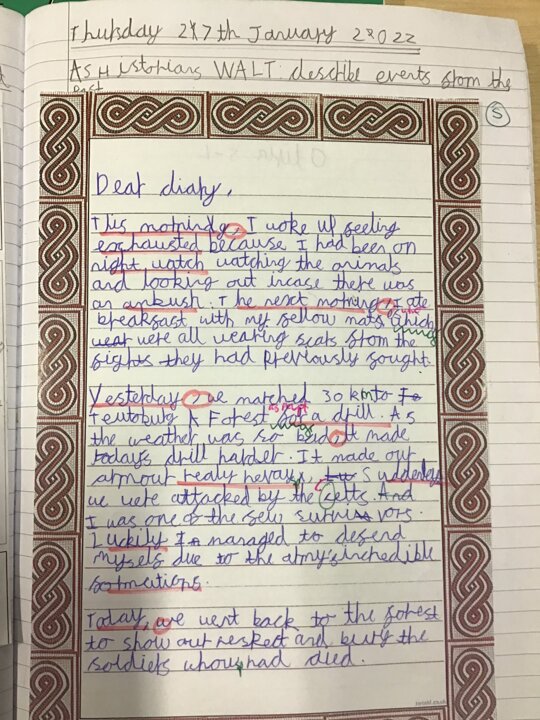 Thursday 27th January 2022
As Historians WALT: describe events from the
past
S
Dear diary,
This morning, I woke up feeling
exhausted because I had been on
night watch watching the animals
and looking out incase there was
an ambush. The next morning, I ate
breakfast with my fellow mats
were all wearing scars from the
fights they had previously fought.
Yesterday we marched 30 km to
Teutoburg Forest as part of a drill. As
the weather was so bad, it made
todays drill harder. It made our
armour realy heavy. Suddenley
we were attacked by the celts. And
I was one of the few survivors.
Luckily I managed to defend
myself due to the army's incredible
formations.
Today, we went back to the forest
to show our respect and bury the
soldiers who had died.
twinkl.co.uk